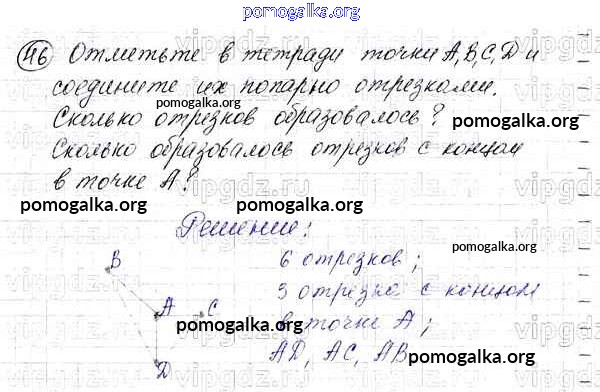 pomogalka.org
46 Отметьте в тетради точки A, B, C, D и
соедините их попарно отрезками.
pomogalka.org
Сколько отрезков образовалось?
pomogalka.org
Сколько образовалось отрезков с концом
в точке A?
pomogalka.org
pomogalka.org
Решение:
B
6 отрезков;
pomogalka.org
3 отрезка с концом
A
C
pomogalka.org
в точке A;
D
AD, AC, AB
pomogalka.org
vipgdz.ru